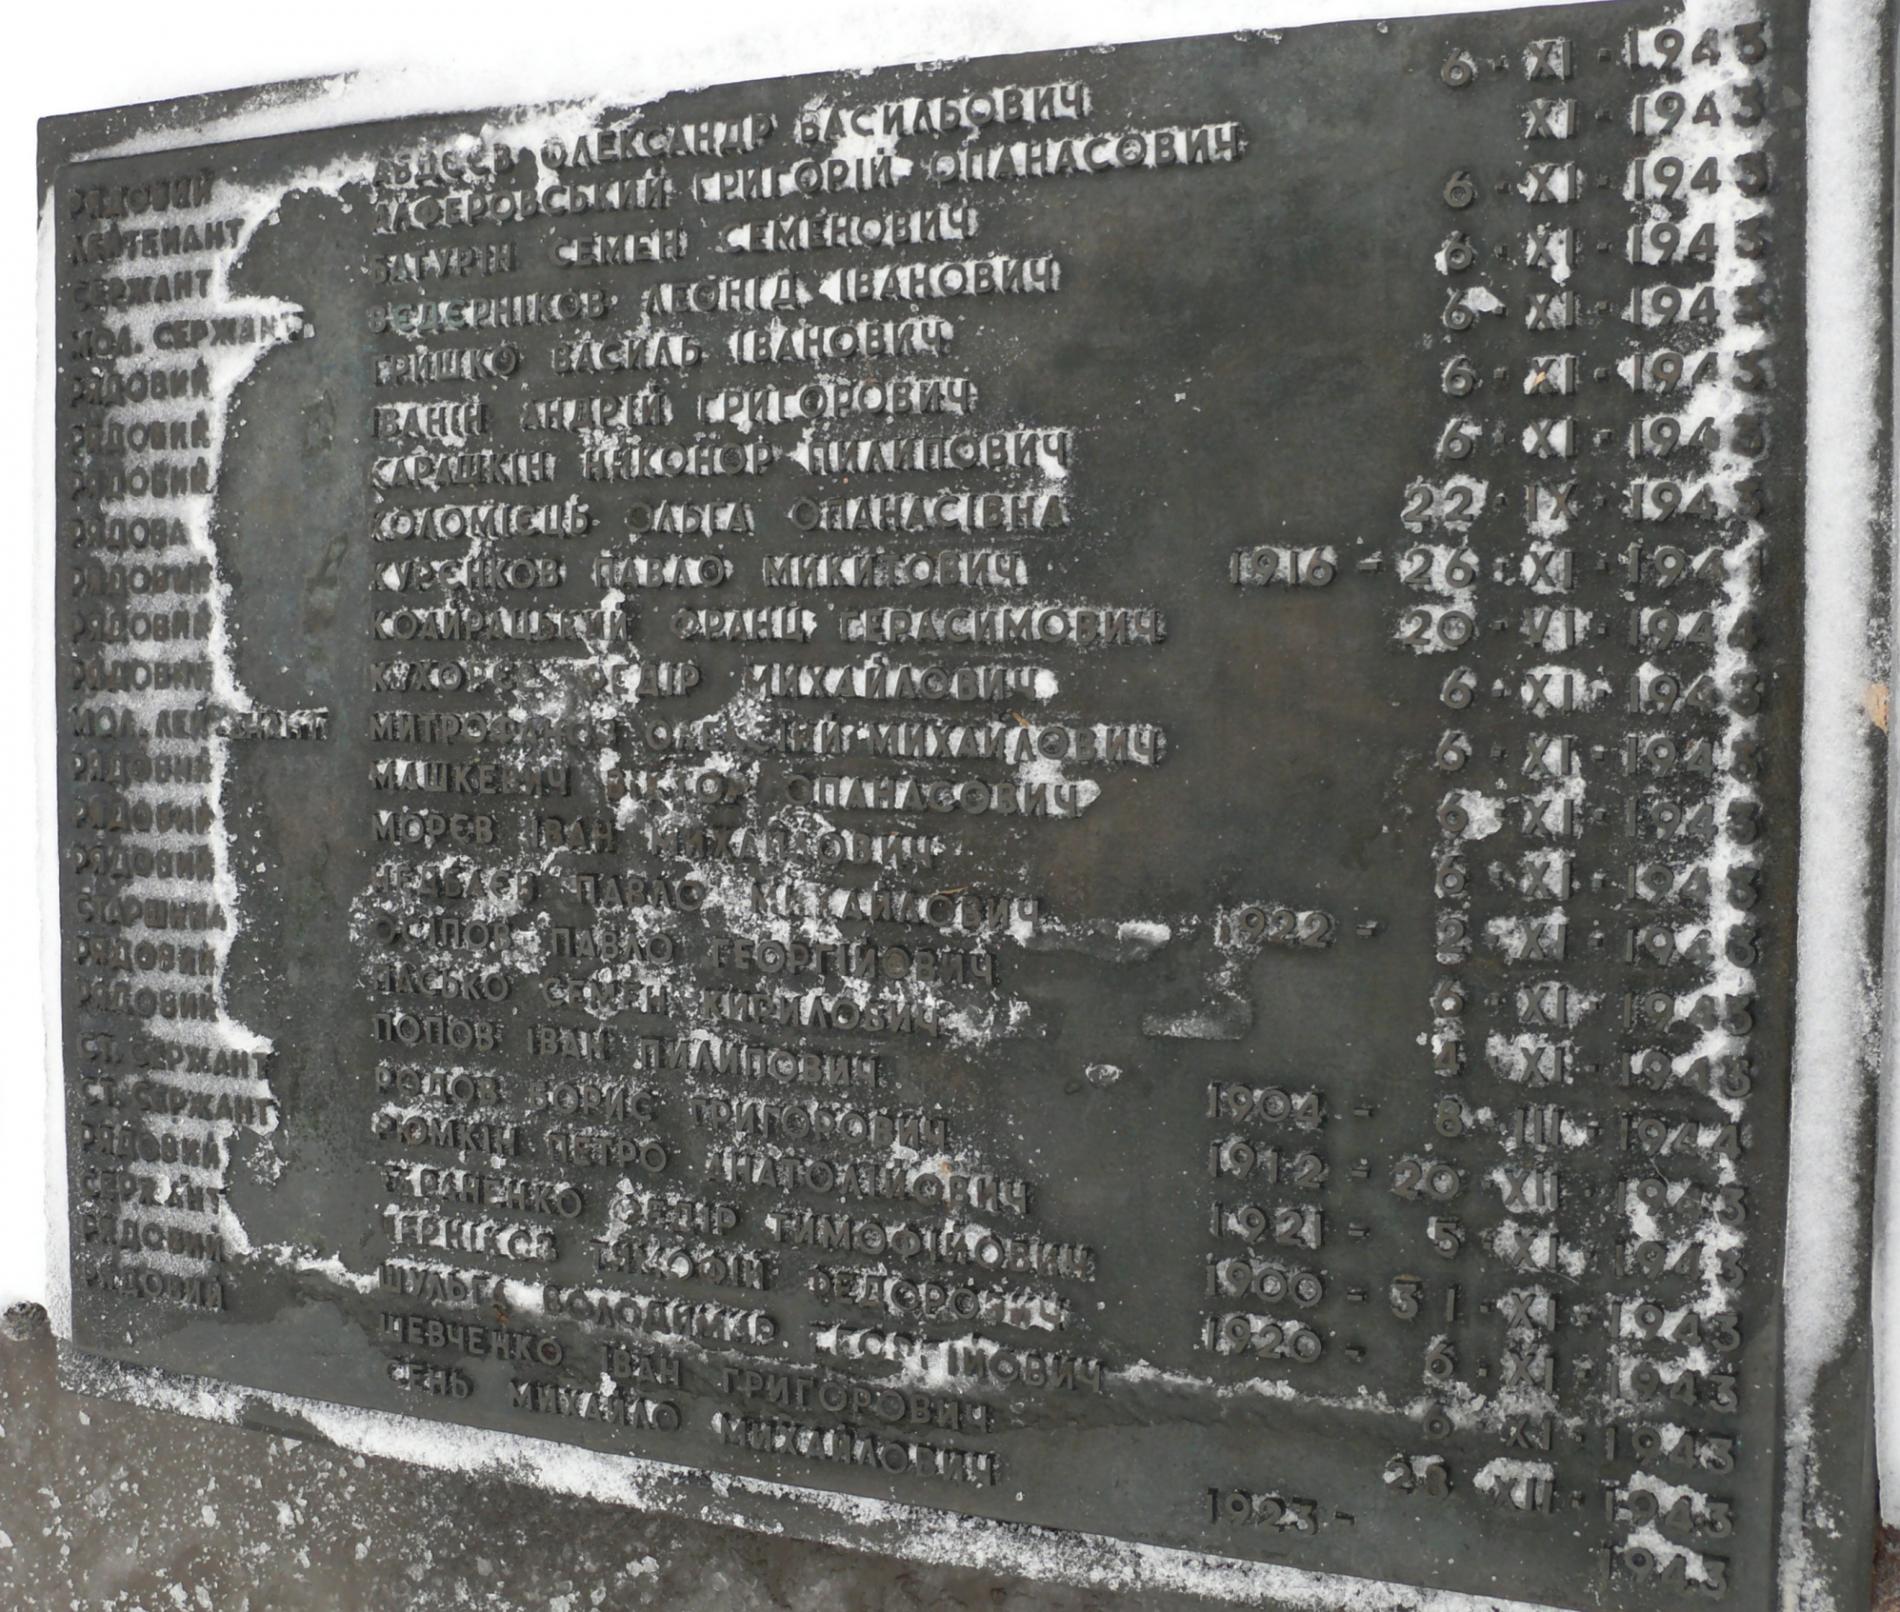 РЯДОВИЙ АВДЄЄВ ОЛЕКСАНДР ВАСИЛЬОВИЧ 6·XI·1943
ЛЕЙТЕНАНТ АЛФЕРОВСЬКИЙ ГРИГОРІЙ ОПАНАСОВИЧ XI·1943
СЕРЖАНТ БАТУРІН СЕМЕН СЕМЕНОВИЧ 6·XI·1943
МОЛ. СЕРЖАНТ ВЄДЄРНІКОВ ЛЕОНІД ІВАНОВИЧ 6·XI·1943
РЯДОВИЙ ГРИШКО ВАСИЛЬ ІВАНОВИЧ 6·XI·1943
РЯДОВИЙ ІВАНІН АНДРІЙ ГРИГОРОВИЧ 6·XI·1943
РЯДОВИЙ КАРАШКІН НИКОНОР ПИЛИПОВИЧ 6·XI·1943
РЯДОВА КОЛОМІЄЦЬ ОЛЬГА ОПАНАСІВНА 22·IX·1943
РЯДОВИЙ КУРЄНКОВ ПАВЛО МИКИТОВИЧ 1916 - 26·XI·1941
РЯДОВИЙ ФРАНЦ ГЕРАСИМОВИЧ 20·VI·1944
РЯДОВИЙ КУХОРЄВ ФЕДІР МИХАЙЛОВИЧ 6·XI·1943
МОЛ. ЛЕЙТЕНАНТ МИТРОФАНОВ МИХАЙЛОВИЧ 6·XI·1943
РЯДОВИЙ МАШКЕВИЧ ВІКТОР ОПАНАСОВИЧ 6·XI·1943
РЯДОВИЙ МОРЄВ ІВАН МИХАЙЛОВИЧ 6·XI·1943
РЯДОВИЙ ПАВЛО МИХАЙЛОВИЧ 1922 - 2·XI·1943
СТАРШИНА ОСІПОВ ПАВЛО ГЕОРГІЙОВИЧ 6·XI·1943
РЯДОВИЙ ПАСЬКО СЕМЕН КИРИЛОВИЧ 4·XI·1943
РЯДОВИЙ ПОПОВ ІВАН ПИЛИПОВИЧ 1904 - 8·III·1944
СТ. СЕРЖАНТ РОДОВ БОРИС ГРИГОРОВИЧ 1912 - 20·XII·1943
СТ. СЕРЖАНТ РЮМКІН ПЕТРО АНАТОЛІЙОВИЧ 1921 - 5·XI·1943
РЯДОВИЙ ТАРАНЕНКО ФЕДІР ТИМОФІЙОВИЧ 1900 - 31·XI·1943
СЕРЖАНТ ЧЕРНІКОВ ТИМОФІЙ ФЕДОРОВИЧ 1920 - 6·XI·1943
РЯДОВИЙ ШУЛЬГА ВОЛОДИМИР ГЕОРГІЙОВИЧ 6·XI·1943
РЯДОВИЙ ШЕВЧЕНКО ІВАН ГРИГОРОВИЧ 28·XII·1943
СЕНЬ МИХАЙЛО МИХАЙЛОВИЧ 1923 - 1943